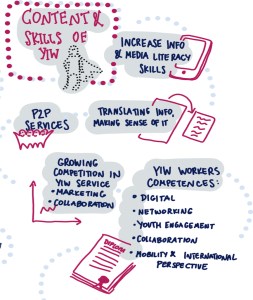 CONTENT &
SKILLS OF
YIW
INCREASE INFO
& MEDIA LITERACY
SKILLS
P2P
SERVICES
TRANSLATING INFO,
MAKING SENSE OF IT
GROWING
COMPETITION IN
YIW SERVICE
• MARKETING
• COLLABORATION
YIW WORKERS
COMPETENCES:
• DIGITAL
• NETWORKING
• YOUTH ENGAGEMENT
• COLLABORATION
• MOBILITY & INTERNATIONAL
PERSPECTIVE
DIPLOMA